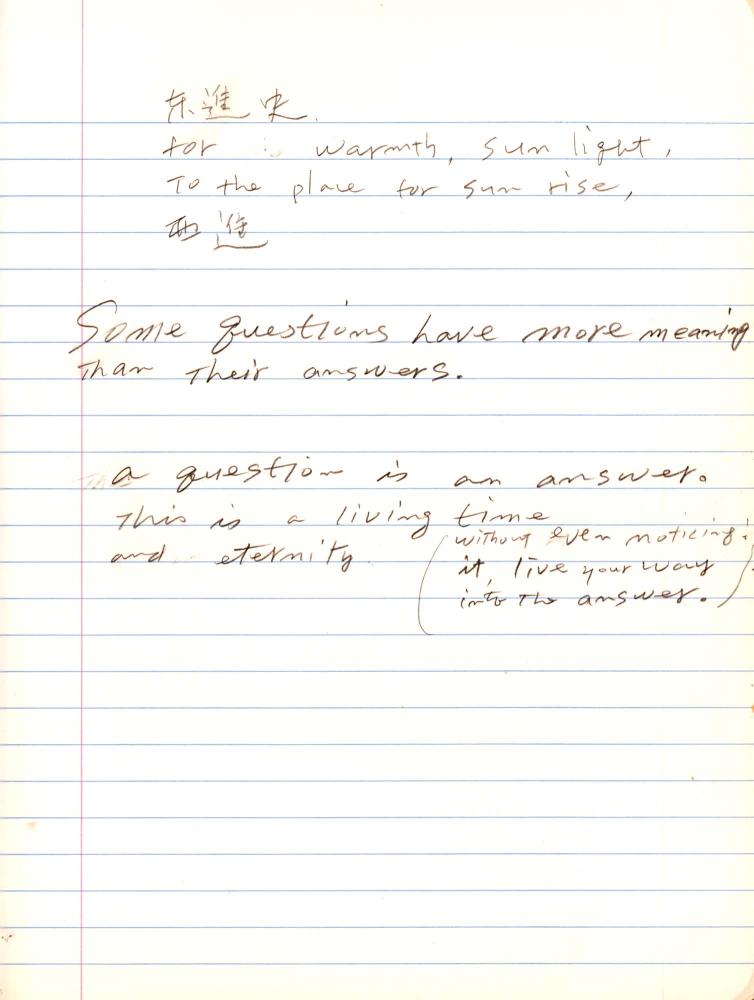 东進史.
for warmth, sun light,
To the place for sun rise,
西進
Some questions have more meaning
Than Their answers.
a question is an answer.
This is a living time
and eternity
(without even noticing
it, live your way
into The answer.)